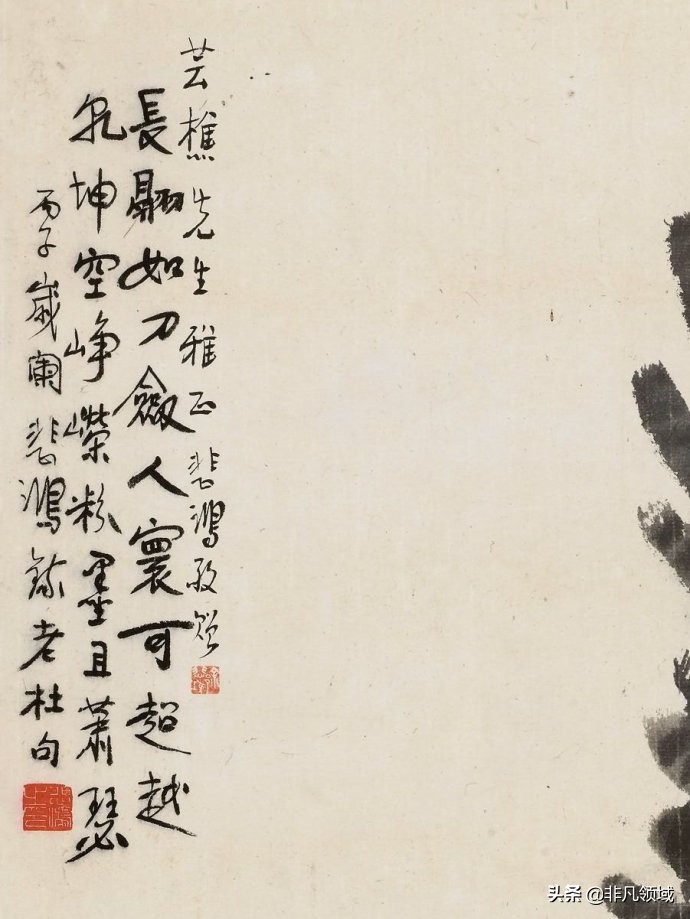 芸樵先生雅正悲鴻敬贈
長翮如刀劍人寰可超越
乾坤空崢嶸粉墨且蕭瑟
丙子歲闌悲鴻錄老杜句
头条 @非凡领域